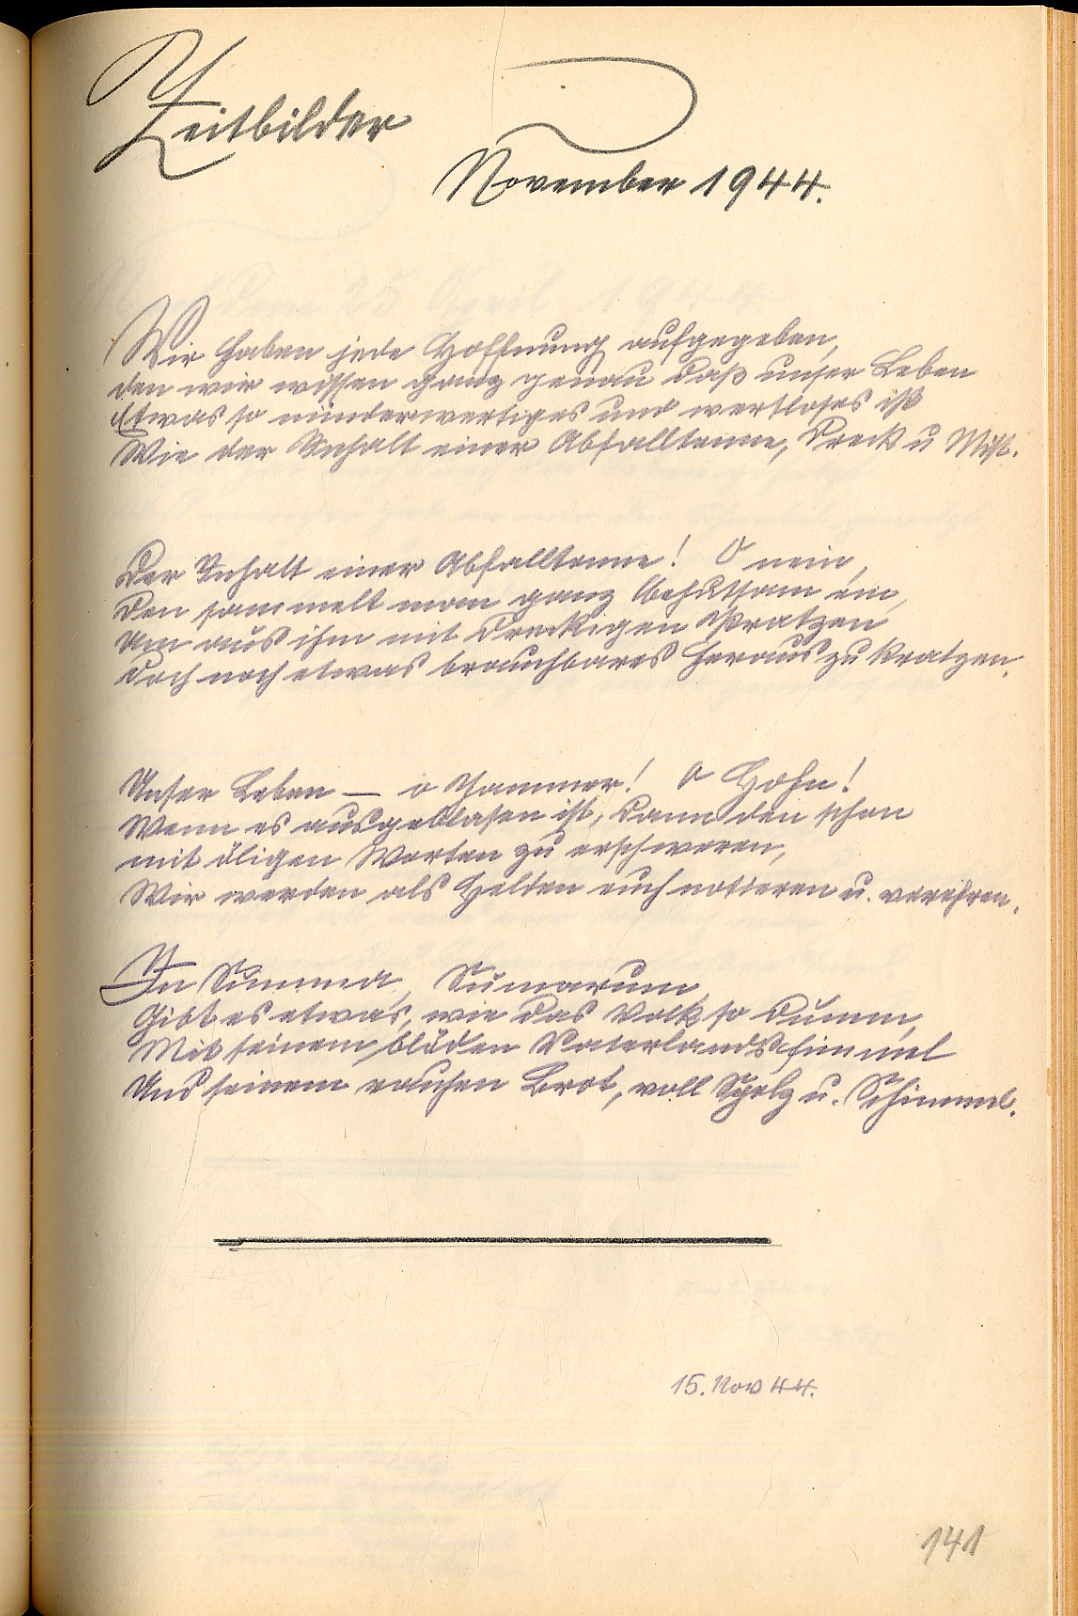 Zeitbilder
November 1944.
Wir haben jede Hoffnung aufgegeben,
den wir wissen ganz genau daß unser Leben
Etwas so minderwertiges und wertloses ist
Wie der Inhalt einer Abfalltonne, Dreck u Mist.
Der Inhalt einer Abfalltonne! O nein,
Den sammelt man ganz behutsam ein,
Um aus ihm mit dreckigen Pratzen
Doch noch etwas brauchbares herauszukratzen.
Unser Leben — o Jammer! O Hohn!
Wenn es ausgeblasen ist, dann den schon
mit öligen Worten zu erschweren,
Wir werden als Helden euch notieren u. verehren.
In Summa, Sumarum
Gibt es etwas, wie das Volk so dumm,
Mit seinem blöden Vaterlandsfimmel
Und seinem rauhen Brot, voll Spelz u. Schimmel.
15. Nov 44.
141